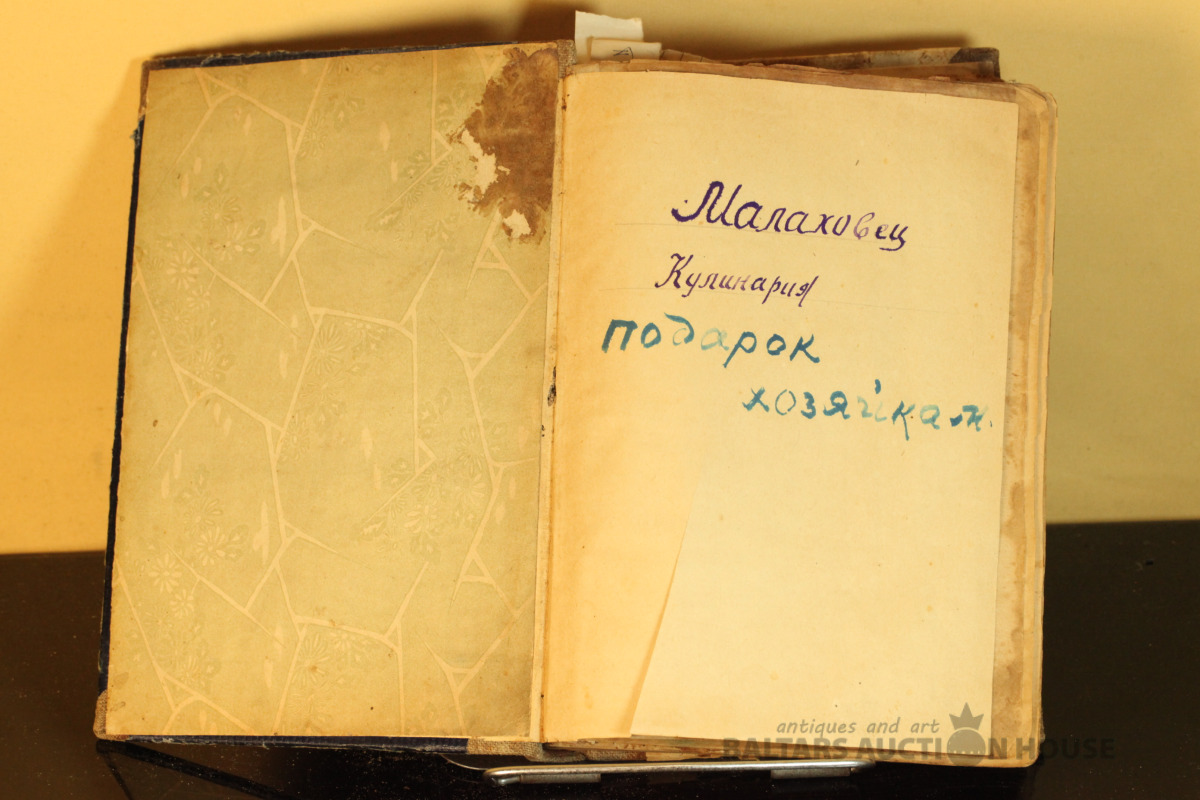 Малаховец
Кулинария
подарок
хозяйкам.
antiques and art
BALTARS AUCTION HOUSE